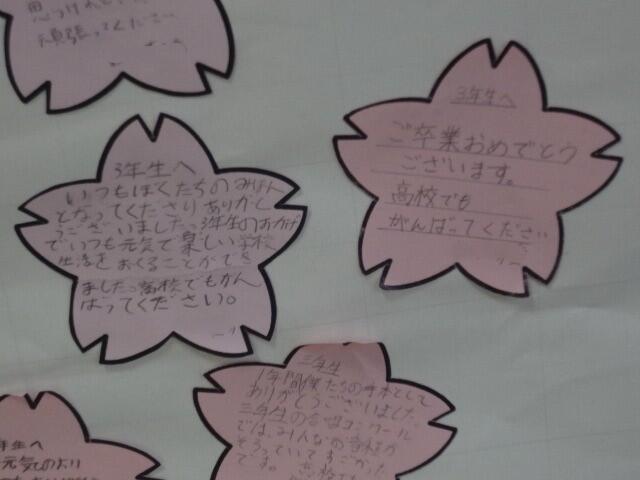 頑張ってください
3年生へ
ご卒業おめでとう
ございます。
高校でも
がんばってください
3年生へ
いつもぼくたちのみほん
となってくださりありがと
うございました。3年生のおかげ
でいつも元気で楽しい学校
生活をおくることができ
ました。高校でもがん
ばってください。
三年生
1年間僕たちの手本として
ありがとうございました
三年生の合唱コンクール
では、みんなの音程が
そろっていてすごかった
です。高校でも
年生へ
元気のより